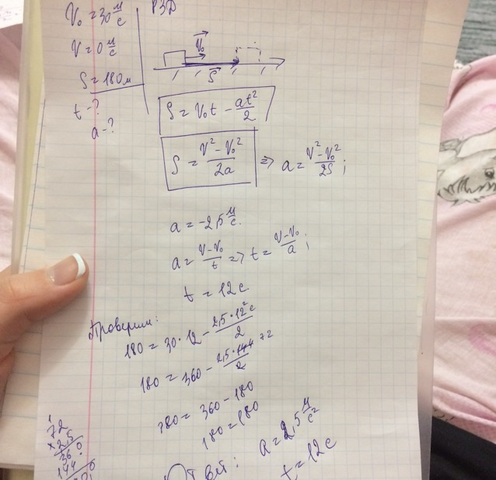 V₀ = 30 м/с
V = 0 м/с
S = 180 м
t - ?
a - ?
РЗД
V₀
S
S = V₀t - at²/2
S = (V² - V₀²)/2a => a = (V² - V₀²)/2S ;
a = -2,5 м/с
a = (V - V₀)/t => t = (V - V₀)/a ;
t = 12 с
Проверим:
180 = 30·12 - 2,5·12² с/2
180 = 360 - 2,5·144/2 72
180 = 360 - 180
180 = 180
1
72
×2,5
360
144
Ответ: a = 2,5 м/с²
t = 12 с